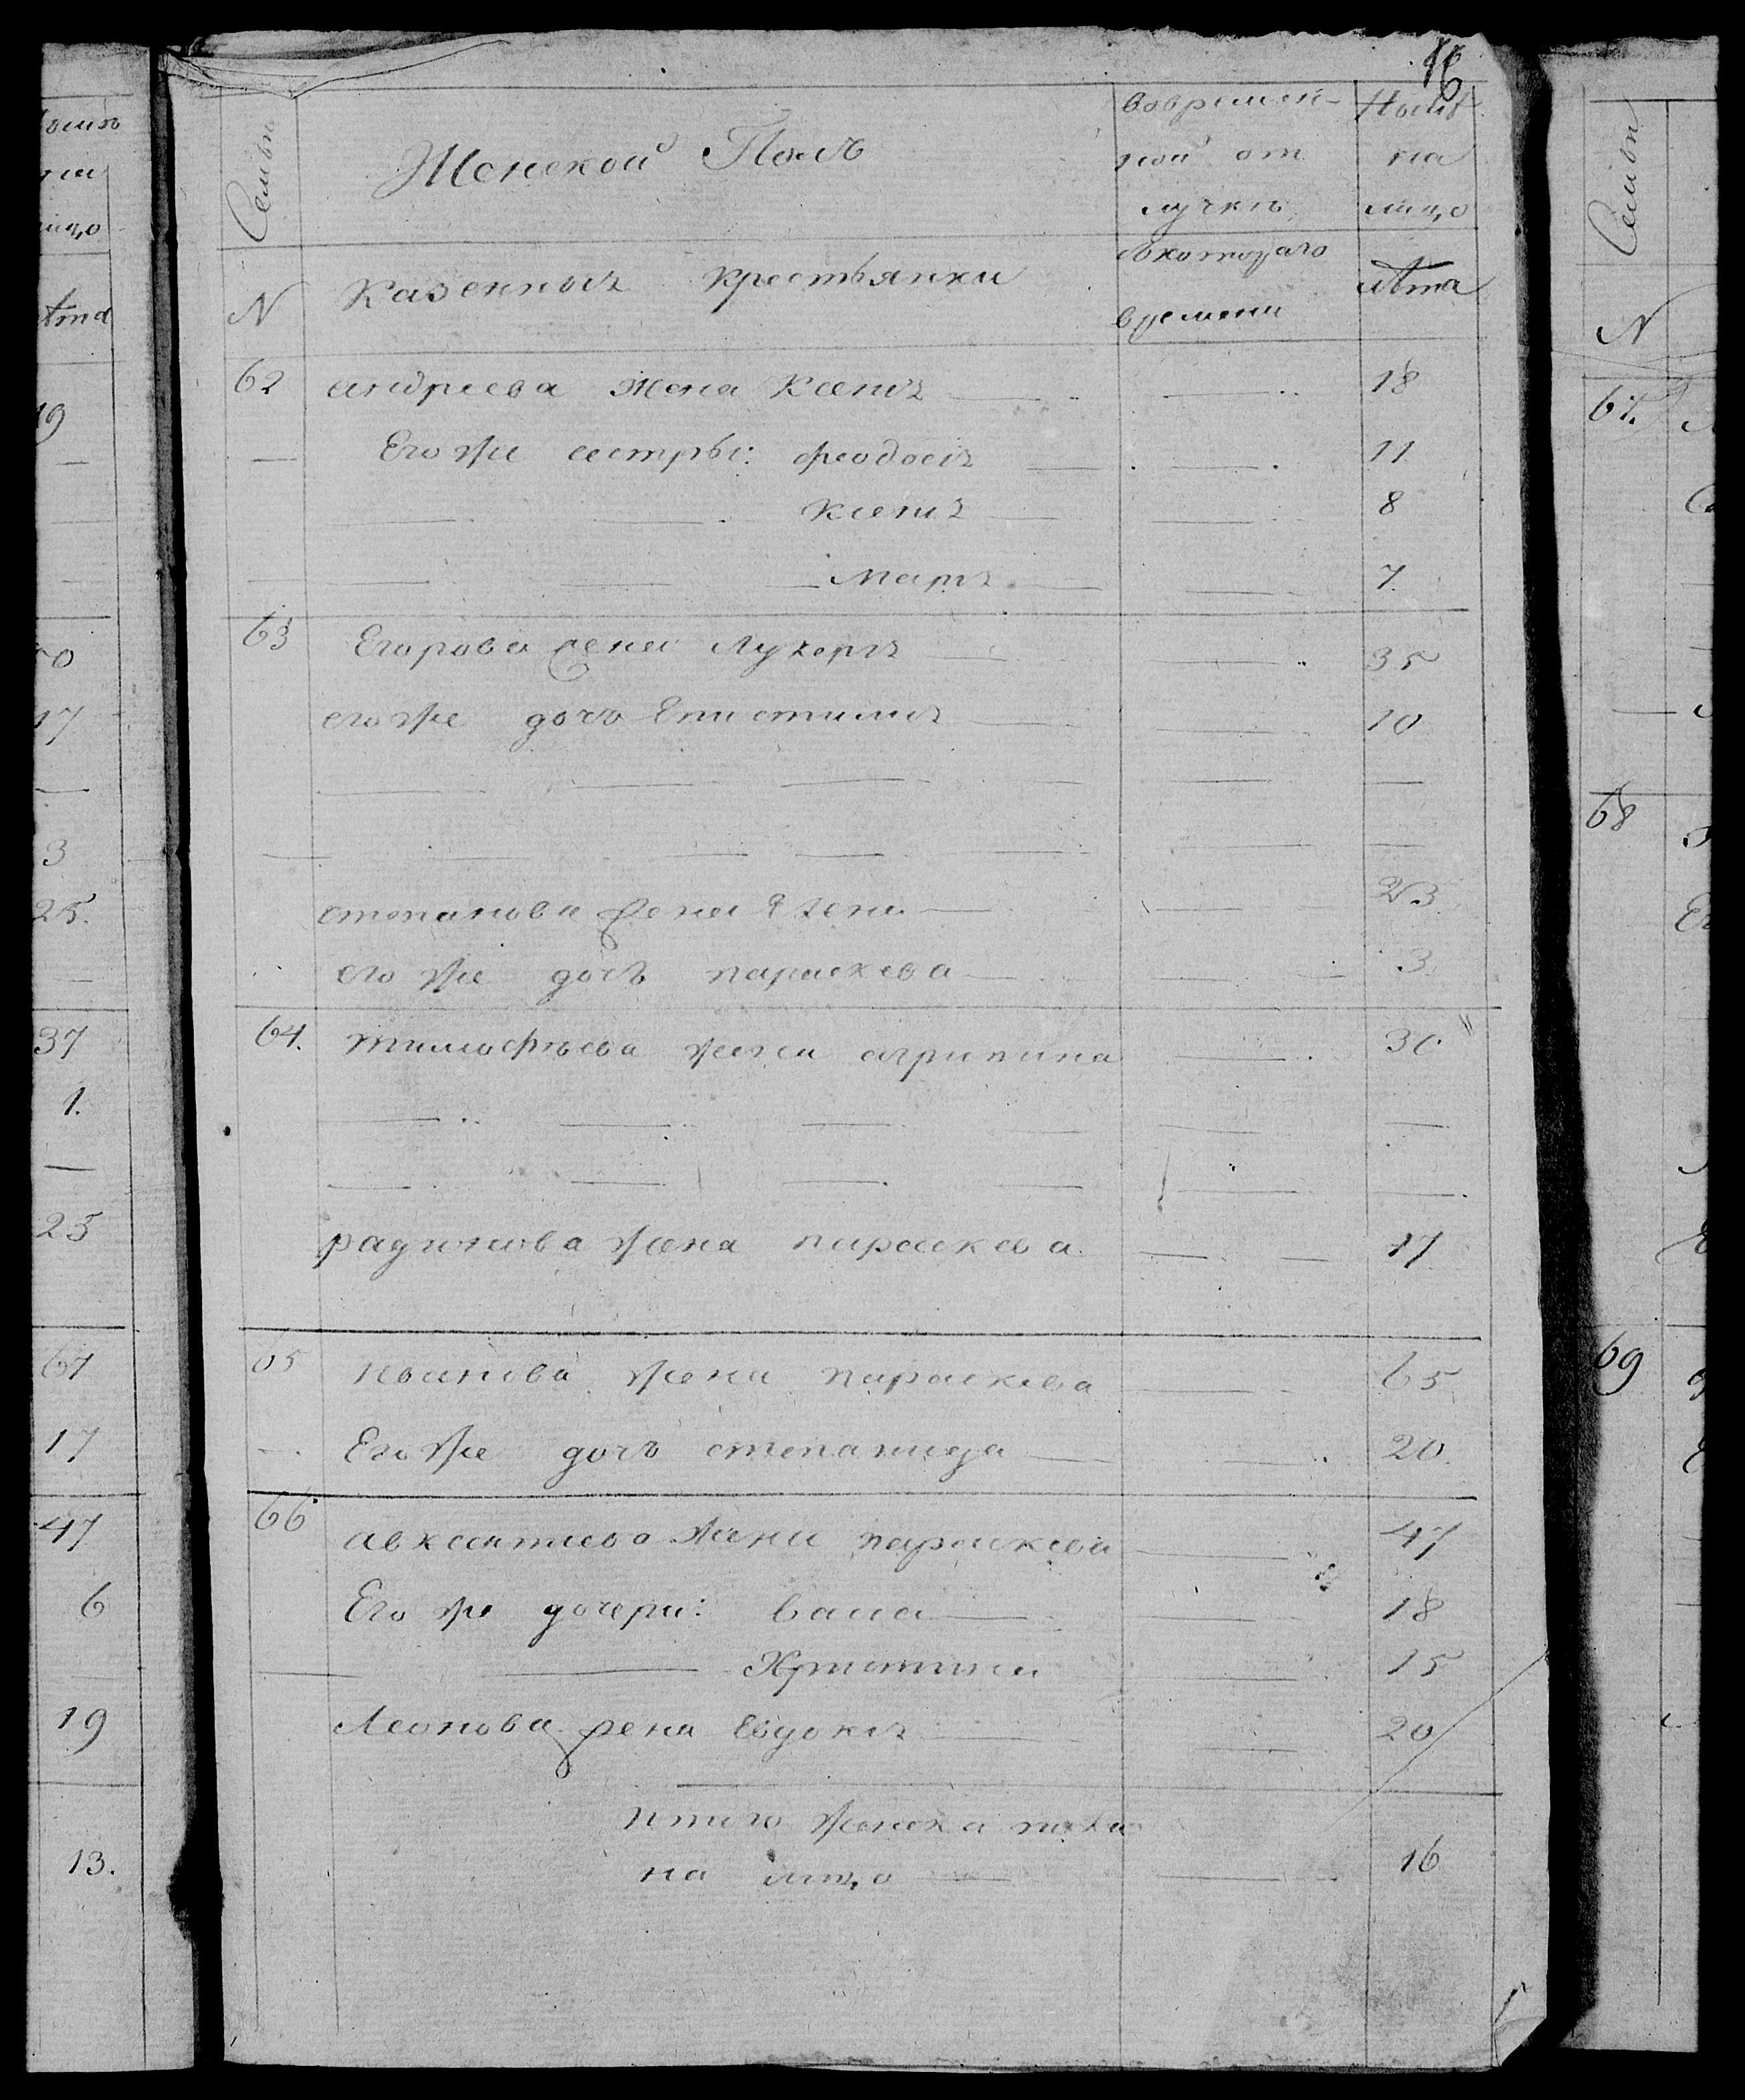 16
Семьи
Женской Полъ
вовремен-
ной от
лучкѣ
Ныне
на
лицо
N
Казенныя крестьянки
скотораго
времени
лѣта
62 андреева жена Ксения 18
Его же сестры: феодосия 11
Ксения 8
Мария 7
63 Егорова жена Лукерия 35
его же дочь Епистимия 10
степанова жена 23
его же дочь параскева 3
64. тимофѣева жена агрипина 30
радионова жена параскева 17
65 иванова жена параскева 65
Его же дочь степанида 20
66 авксентиева жена параскева 47
Его же дочери: васса 18
Христина 15
Леонова жена Евдокия 20
итого женска пола
на лицо 16
омъ
на
ицо
ѣта
19
17
3
25.
37
1.
25
67
17
47
6
19
13.
Семьи
N
67.
68
69